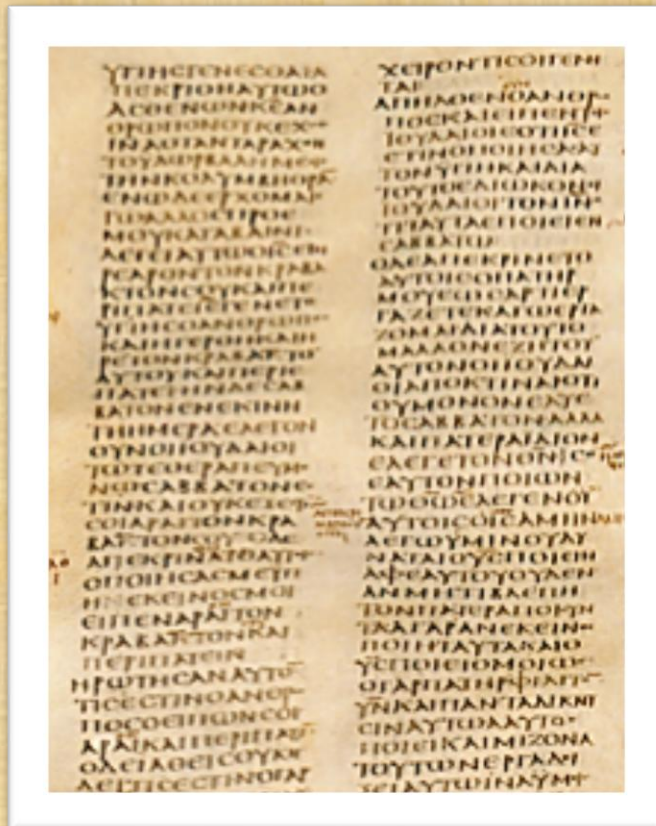 ΥΓΙΗϹΓΕΝΕϹΘΑΙΑ
ΠΕΚΡΙΘΗΑΥΤΩΟ
ΑϹΘΕΝΩΝΚΕΑΝ
ΘΡΩΠΟΝΟΥΚΕΧΩ
ΙΝΑΟΤΑΝΤΑΡΑΧΘΗ
ΤΟΥΔΩΡΒΑΛΗΜΕ
ΤΗΝΚΟΛΥΜΒΗΘΡΑ
ΕΝΩΔΕΕΡΧΟΜΑΙ
ΕΓΩΑΛΛΟϹΠΡΟΕ
ΜΟΥΚΑΤΑΒΑΙΝΙ
ΛΕΓΕΙΑΥΤΩΟΙϹΕΓΙ
ΡΕΑΡΟΝΤΟΝΚΡΑΒΑ
ΚΤΟΝϹΟΥΚΑΙΠΕ
ΡΙΠΑΤΕΙΕΓΕΝΕΤΟ
ΥΓΙΗϹΟΑΝΘΡΩΠΟ
ΚΑΙΗΓΕΡΘΗΚΑΙΗ
ΡΕΤΟΝΚΡΑΒΑΚΤΟ
ΑΥΤΟΥΚΑΙΠΕΡΙΕ
ΠΑΤΕΙΗΝΔΕϹΑΒ
ΒΑΤΟΝΕΝΕΚΙΝΗ
ΤΗΗΜΕΡΑΕΛΕΓΟΝ
ΟΥΝΟΙΙΟΥΔΑΙΟΙ
ΤΩΤΕΘΕΡΑΠΕΥΜΕ
ΝΩϹΑΒΒΑΤΟΝΕ
ϹΤΙΝΚΑΙΟΥΚΕΞΕϹΤΙ
ϹΟΙΑΡΑΙΤΟΝΚΡΑ
ΒΑΚΤΟΝϹΟΥΟΔΕ
ΑΠΕΚΡΙΝΑΤΟΑΥΤΟΙ
ΟΠΟΙΗϹΑϹΜΕΥΓΙ
ΗΕΚΕΙΝΟϹΜΟΙ
ΕΙΠΕΝΑΡΑΙΤΟΝ
ΚΡΑΒΑΚΤΟΝΚΑΙ
ΠΕΡΙΠΑΤΕΙΝ
ΗΡΩΤΗϹΑΝΑΥΤΟ
ΤΙϹΕϹΤΙΝΟΑΝΘΡΩ
ΠΟϹΟΕΙΠΩΝϹΟΙ
ΑΡΑΙΚΑΙΠΕΡΙΠΑΤΙ
ΟΔΕΙΑΘΕΙϹΟΥΚΗ
ΔΕΙΤΙϹΕϹΤΙΝΟΓΑΡ
ΧΕΙΡΟΝΤΙϹΟΙΓΕΝΗ
ΤΑΙ
ΑΠΗΛΘΕΝΟΑΝΘΡΩ
ΠΟϹΚΑΙΕΙΠΕΝΤΟΙϹ
ΙΟΥΔΑΙΟΙϹΟΤΙΙϹ
ΕϹΤΙΝΟΠΟΙΗϹΑϹΑΥ
ΤΟΝΥΓΙΗΚΑΙΔΙΑ
ΤΟΥΤΟΕΔΙΩΚΟΝΟΙ
ΙΟΥΔΑΙΟΙΤΟΝΙΝ
ΟΤΙΤΑΥΤΑΕΠΟΙΕΙΕΝ
ϹΑΒΒΑΤΩ
ΟΔΕΑΠΕΚΡΙΝΕΤΟ
ΑΥΤΟΙϹΟΠΑΤΗΡ
ΜΟΥΕΩϹΑΡΤΙΕΡ
ΓΑΖΕΤΕΚΑΓΩΕΡΓΑ
ΖΟΜΑΙΔΙΑΤΟΥΤΟ
ΜΑΛΛΟΝΕΖΗΤΟΥ
ΑΥΤΟΝΟΙΙΟΥΔΑΙ
ΟΙΑΠΟΚΤΙΝΑΙΟΤΙ
ΟΥΜΟΝΟΝΕΛΥΕ
ΤΟϹΑΒΒΑΤΟΝΑΛΛΑ
ΚΑΙΠΑΤΕΡΑΙΔΙΟΝ
ΕΛΕΓΕΤΟΝΘΝΙϹΟ
ΕΑΥΤΟΝΠΟΙΩΝ
ΤΩΘΩΕΛΕΓΕΝΟΥ
ΑΥΤΟΙϹΟΙϹΑΜΗΝ
ΛΕΓΩΥΜΙΝΟΥΔΥ
ΝΑΤΑΙΟΥϹΠΟΙΕΙΝ
ΑΦΕΑΥΤΟΥΟΥΔΕΝ
ΑΝΜΗΤΙΒΛΕΠΗ
ΤΟΝΠΑΤΕΡΑΠΟΙΟΥΝ
ΤΑΑΓΑΡΑΝΕΚΕΙΝΟ
ΠΟΙΗΤΑΥΤΑΚΑΙΟ
ΥϹΠΟΙΕΙΟΜΟΙΩ
ΟΓΑΡΠΑΤΗΡΦΙΛΙΤΟ
ΥΝΚΑΙΠΑΝΤΑΔΙΚΝΥ
ϹΙΝΑΥΤΩΑΑΥΤΟϹ
ΠΟΙΕΙΚΑΙΜΙΖΟΝΑ
ΤΟΥΤΩΝΕΡΓΑΔΙ